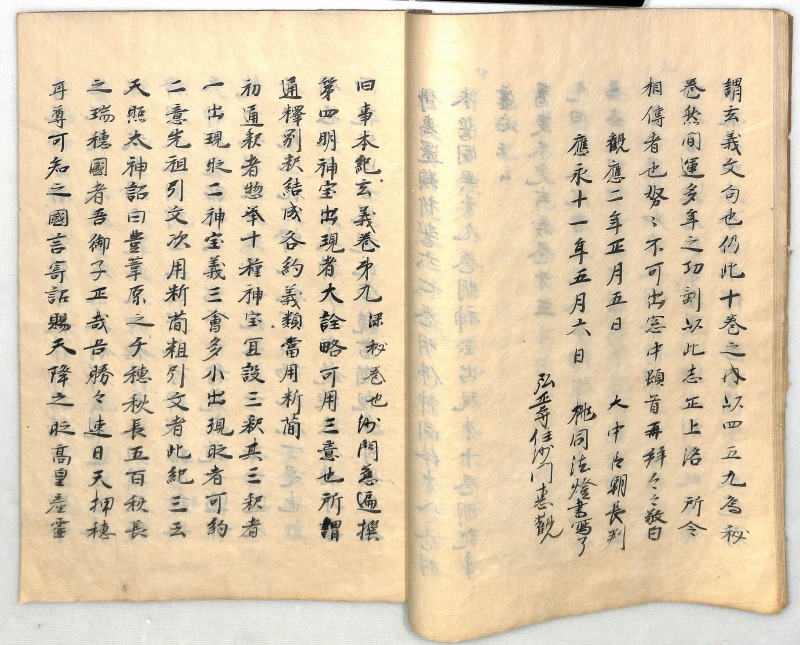 謂玄義文句也仍此十巻之内以四五九為秘
巻然間運多年之功剋以此志正上洛所令
相傳者也努〻不可出窓中頓首再拜〻〻敬白
觀應二年正月五日 大中臣朝長判
應永十一年五月六日 挑同法燈書写了
弘正寺住沙門惠觀
旧事本紀玄義巻第九 深秘巻也 沙門慈遍撰
第四明神宝出現者大詮略可用三意也所謂
通釋別釈結成各約義類當用断簡
初通釈者惣举十種神宝宜設三釈其三釈者
一出現时二神宝義三會多小出現时者可約
二意先祖引文次用断簡粗引文者此紀三云
天照太神詔曰豊葦原之千穗秋長五百秋長
之瑞穗國者吾御子正哉吾勝〻速日天押穗
耳尊可知之國言寄詔賜天降之时高皇產霊